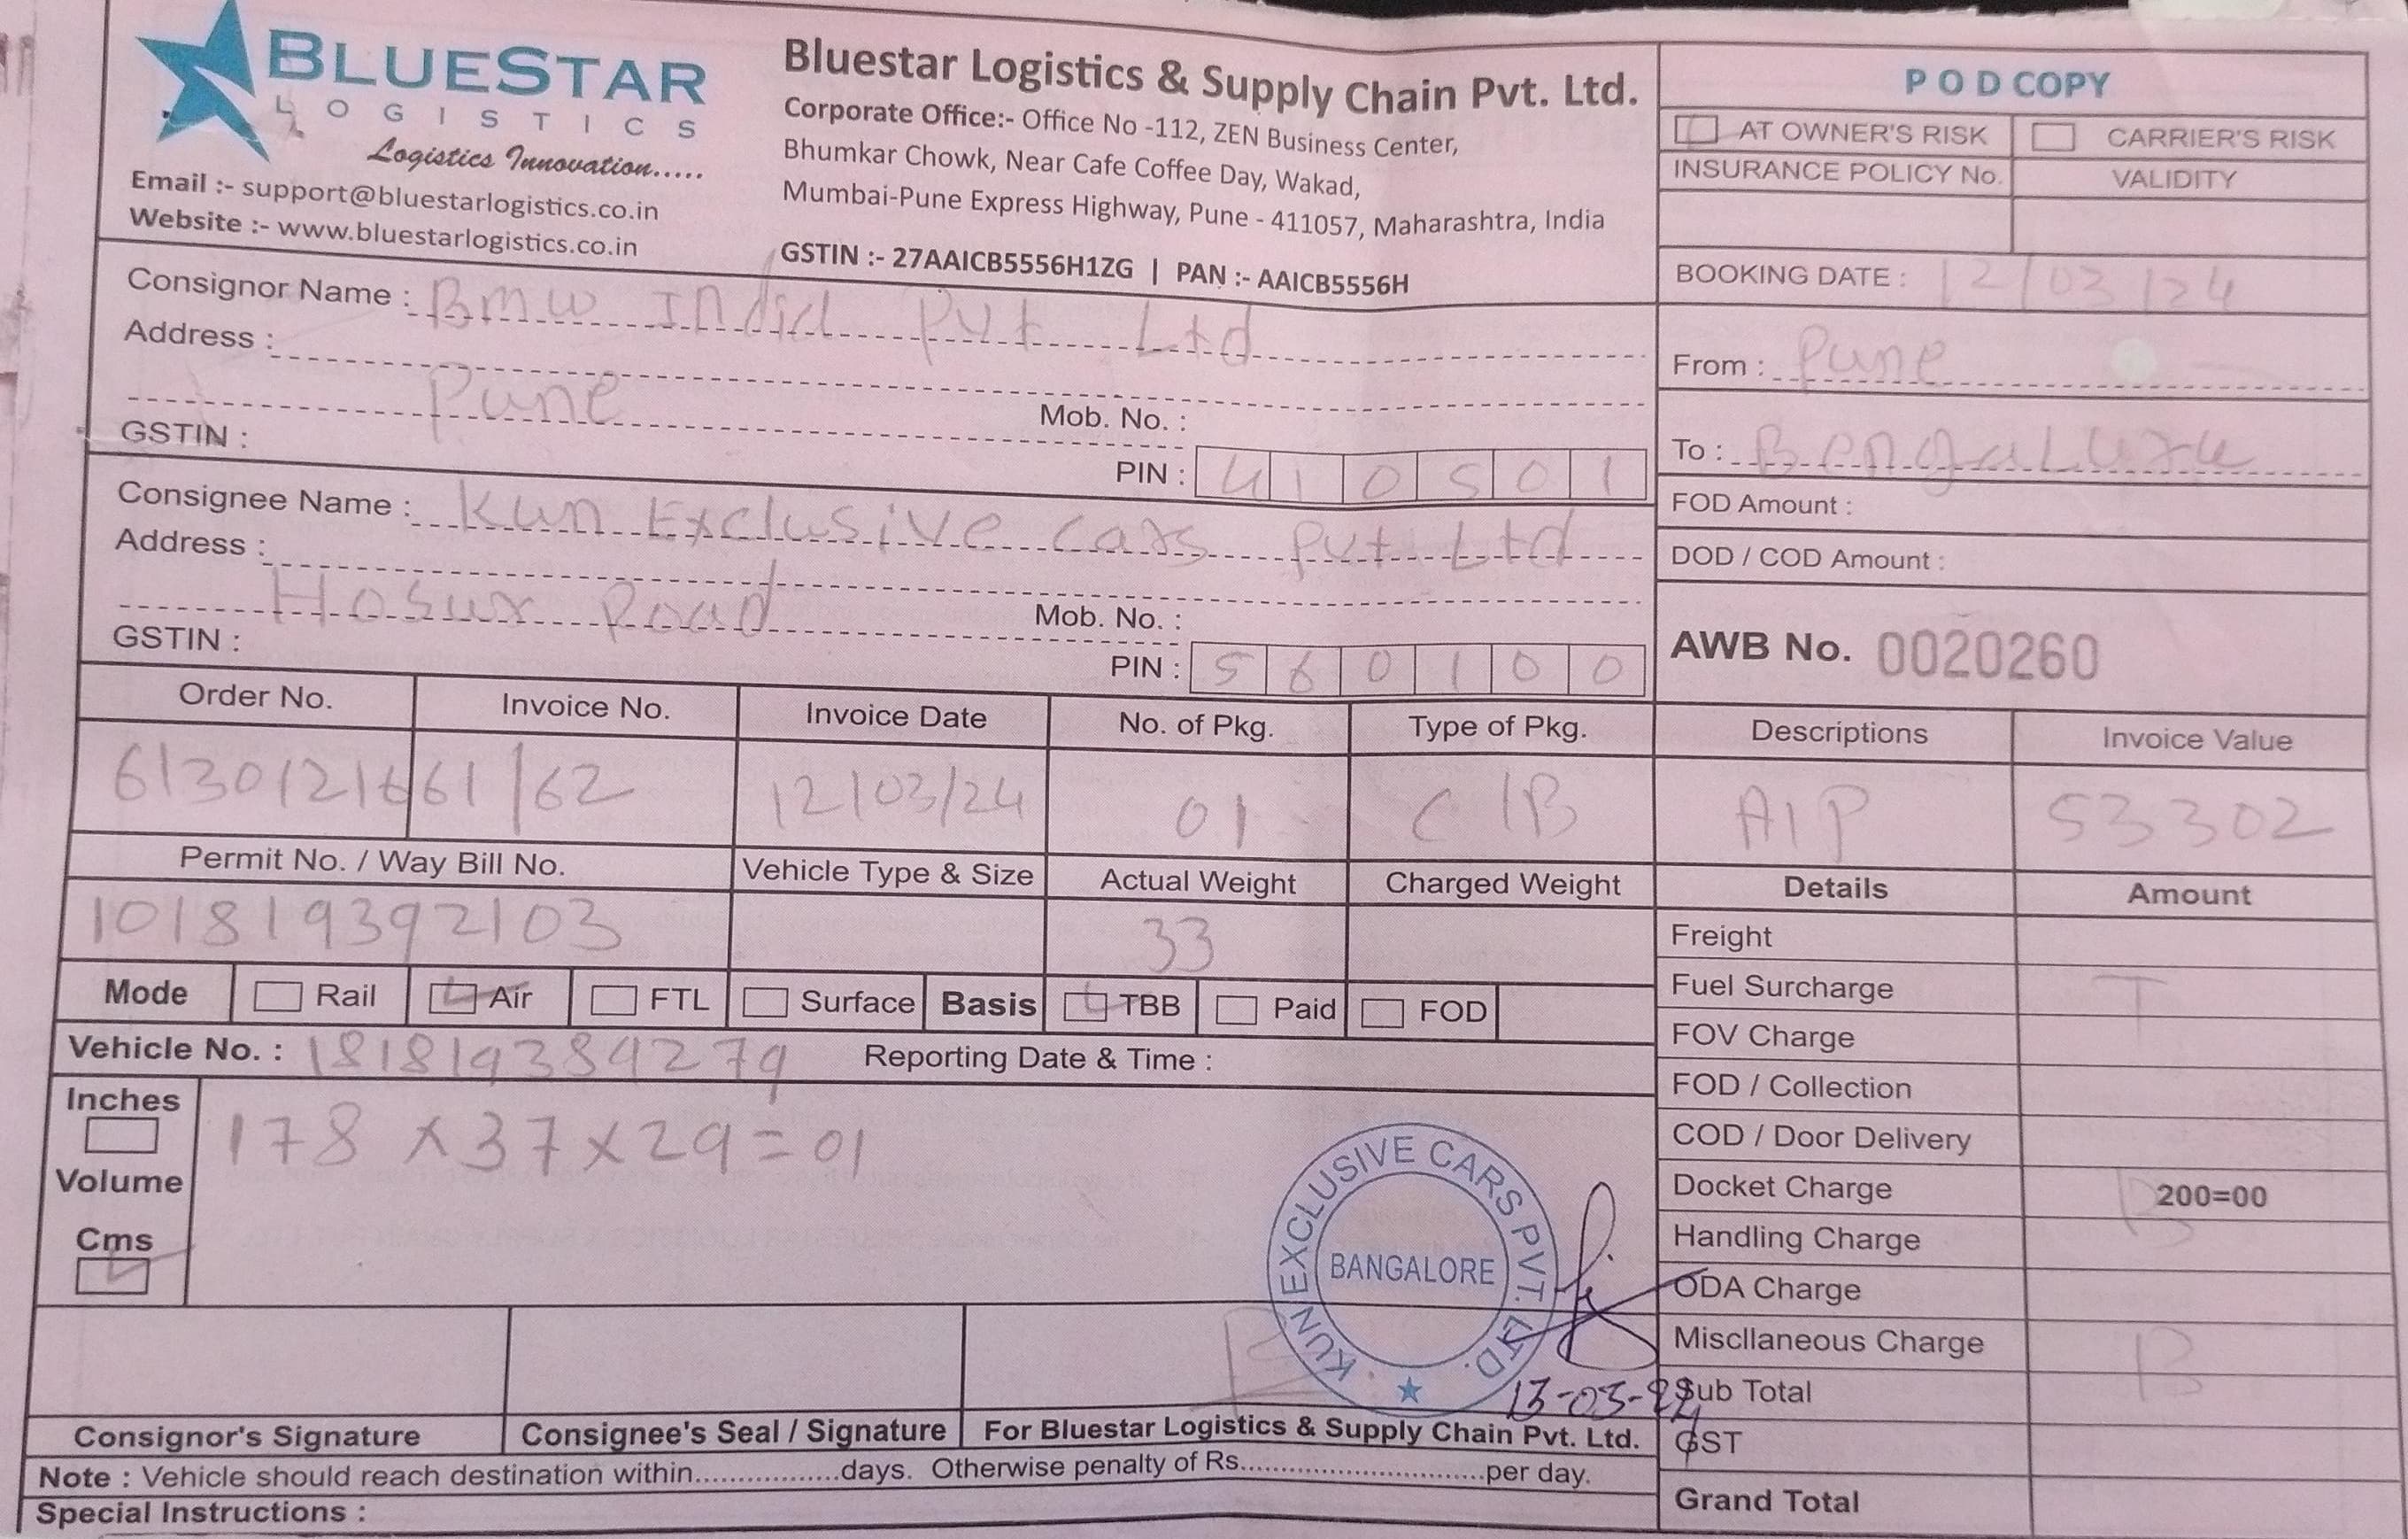 BLUESTAR
LOGISTICS
Logistics Innovation.....
Email :- support@bluestarlogistics.co.in
Website :- www.bluestarlogistics.co.in
Bluestar Logistics & Supply Chain Pvt. Ltd.
Corporate Office:- Office No -112, ZEN Business Center,
Bhumkar Chowk, Near Cafe Coffee Day, Wakad,
Mumbai-Pune Express Highway, Pune - 411057, Maharashtra, India
GSTIN :- 27AAICB5556H1ZG | PAN :- AAICB5556H
POD COPY
AT OWNER'S RISK CARRIER'S RISK
INSURANCE POLICY No. VALIDITY
BOOKING DATE : 12/03/24
From : Pune
To : Bengaluru
FOD Amount :
DOD / COD Amount :
AWB No. 0020260
Consignor Name : Bmw India Pvt Ltd
Address :
Pune
Mob. No. :
GSTIN :
PIN : 410501
Consignee Name : Kun Exclusive Cars Pvt Ltd
Address :
Hosur Road
Mob. No. :
GSTIN :
PIN : 560100
Order No. Invoice No. Invoice Date No. of Pkg. Type of Pkg. Descriptions Invoice Value
6130121661/62 12/03/24 01 C/B A/P 53302
Permit No. / Way Bill No. Vehicle Type & Size Actual Weight Charged Weight Details Amount
101819392103 33
Mode Rail Air FTL Surface Basis TBB Paid FOD
Vehicle No. : 181819389279 Reporting Date & Time :
Inches
Volume
Cms
178 x 37 x 29 = 01
Freight
Fuel Surcharge T
FOV Charge
FOD / Collection
COD / Door Delivery
Docket Charge B 200=00
Handling Charge
ODA Charge
Miscllaneous Charge B
Sub Total
GST
Grand Total
KUN EXCLUSIVE CARS PVT. LTD.
BANGALORE
13-03-24
Consignor's Signature Consignee's Seal / Signature For Bluestar Logistics & Supply Chain Pvt. Ltd.
Note : Vehicle should reach destination within.................days. Otherwise penalty of Rs..............................per day.
Special Instructions :